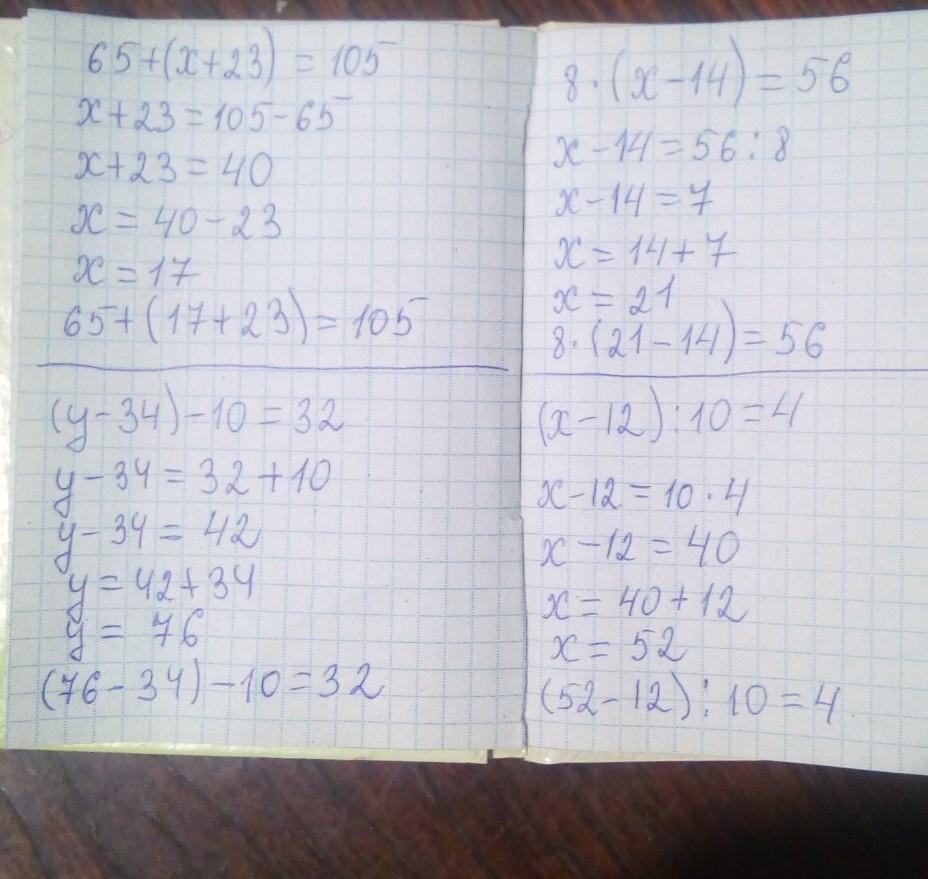 65+(x+23) = 105
x+23=105-65
x+23=40
x = 40-23
x = 17
65+(17+23)=105
(y-34)-10=32
y-34=32+10
y-34= 42
y=42+34
y= 76
(76-34)-10=32
8·(x-14)=56
x-14=56:8
x-14=7
x= 14+7
x= 21
8·(21-14)=56
(x-12):10=4
x-12=10·4
x-12=40
x= 40+12
x= 52
(52-12):10=4